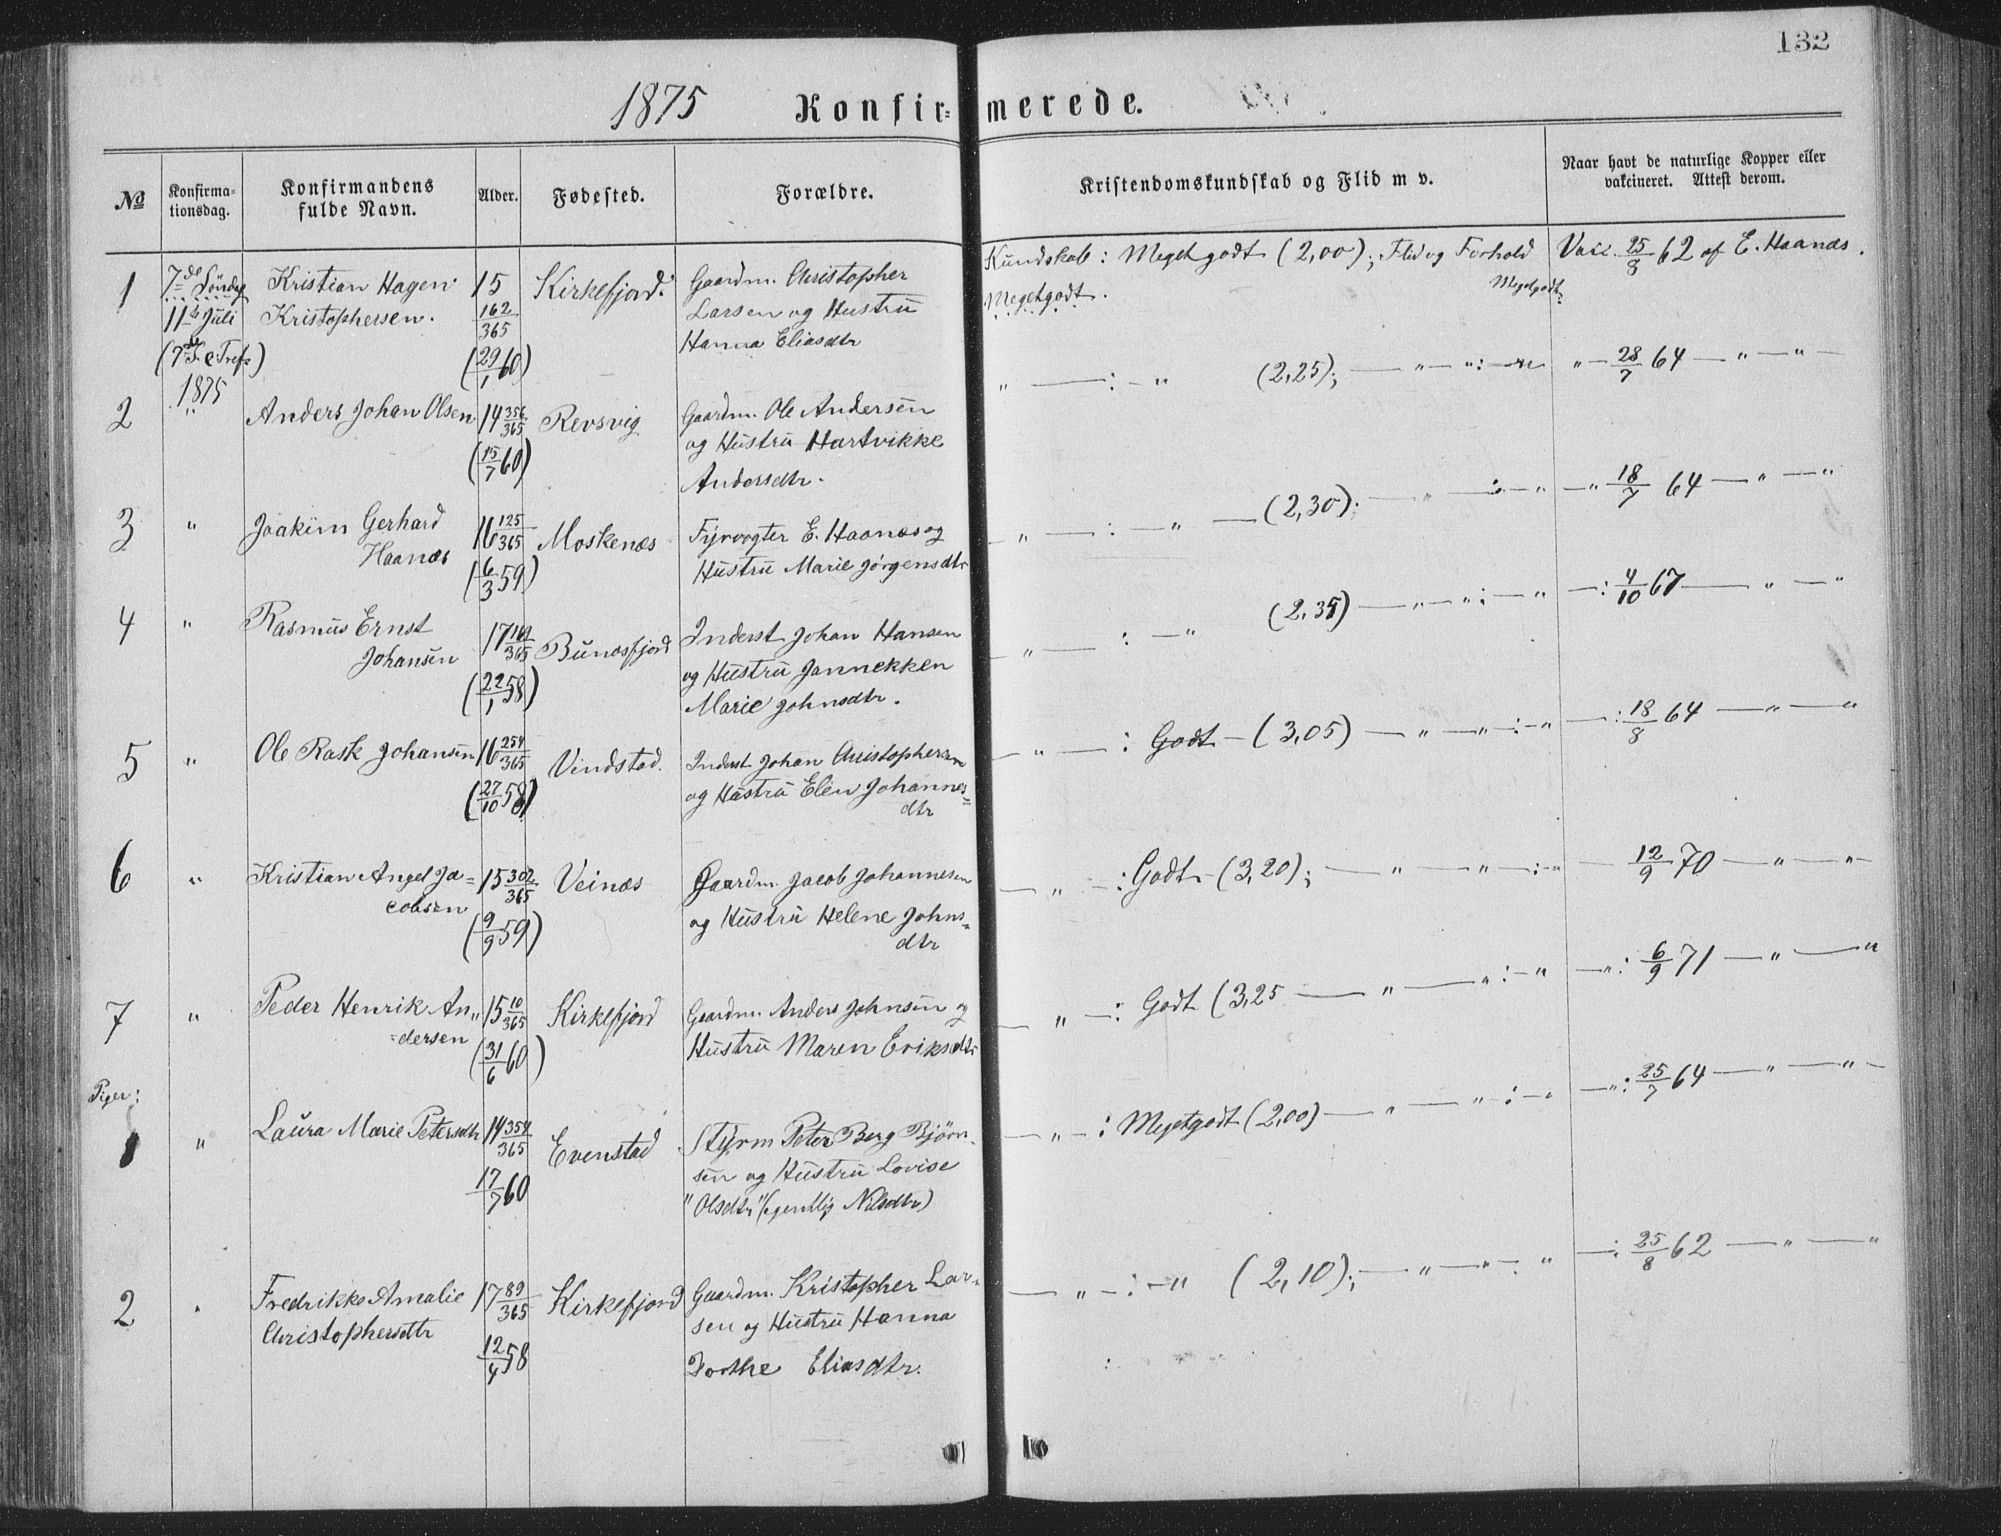 132
1875 Konfir- merede.
№
Konfirma-
tionsdag.
Konfirmandens
fulde Navn.
Alder.
Fødested.
Forældre.
Kristendomskundskab og Flid m v.
Naar havt de naturlige Kopper eller
vakcineret. Attest derom.
1 7de Søndag Kristian Hagen 15 Kirkefjord. Gaardm. Christopher Kundskab: Meget godt (2,00); Flid og Forhold Vacc. 25/8 62 af E. Haanæs.
11te Juli Kristophersen. 162/365 Larsen og Hustru Megetgodt. Megetgodt
(7de S. e Tref.) (29/1 60) Hanna Eliasdtr
1875
2 " Anders Johan Olsen 14 356/365 Revsvig Gaardm. Ole Andersen " — : — " (2,25); — " — " : — " " — 28/7 64 — " — " —
(15/7 60) og Hustru Hartvikke
Andersdtr.
3 " Joakim Gerhard 16 125/365 Moskenæs Fyrvogter E. Haanæs og — " — : — " — (2,30); — " — : — " — " 18/7 64 — " — "
Haanæs (6/3 59) Hustru Marie Jørgensdtr
4 " Rasmus Ernst 17 /365 Bunæsfjord Inderst Johan Hansen — " — : — " (2,35) — " — " : — " — : 4/10 67 — " — "
Johansen (22/1 58) og Hustru Jannekken
Marie Johnsdtr.
5 " Ole Rask Johansen 16 254/365 Vindstad. Inderst Johan Christophersen — " — : Godt — (3,05) — " — " — : — " — : 18/8 64 — " — "
(27/10 58) og Hustru Elen Johannes=
dtr
6 " Kristian Angel Ja= 15 302/365 Veinæs Gaardm. Jacob Johannesen — " — : Godt — (3,20); — " — " — : — " — 12/9 70 — " — " —
cobsen (9/9 59) og Hustru Helene Johns=
dtr
7 " Peder Henrik An" 15 10/365 Kirkefjord Gaardm. Anders Johnsen og — " — : Godt (3,25 — " — " : — " — " : 6/9 71 — " — "
=dersen (31/6 60) Hustru Maren Eriksdtr
Piger:
1 " Laura Marie Petersdtr 14 354/365 Evenstad Styrm Peter Berg Bjørn- — " — : Megetgodt (2,00) — " — " — : — " — " : 25/7 64 — " — " —
17/7 60 sen og Hustru Lovise
"Olsdtr" (egentlig Nilsdtr)
2 " Fredrikke Amalie 17 89/365 Kirkefjord Gaardm. Kristopher Lar- — " — : — " (2,10); — " — " — : " — : 25/8 62 — " — "
Christophersdtr 12/4 58 sen og Hustru Hanna
Dorthe Eliasdtr.